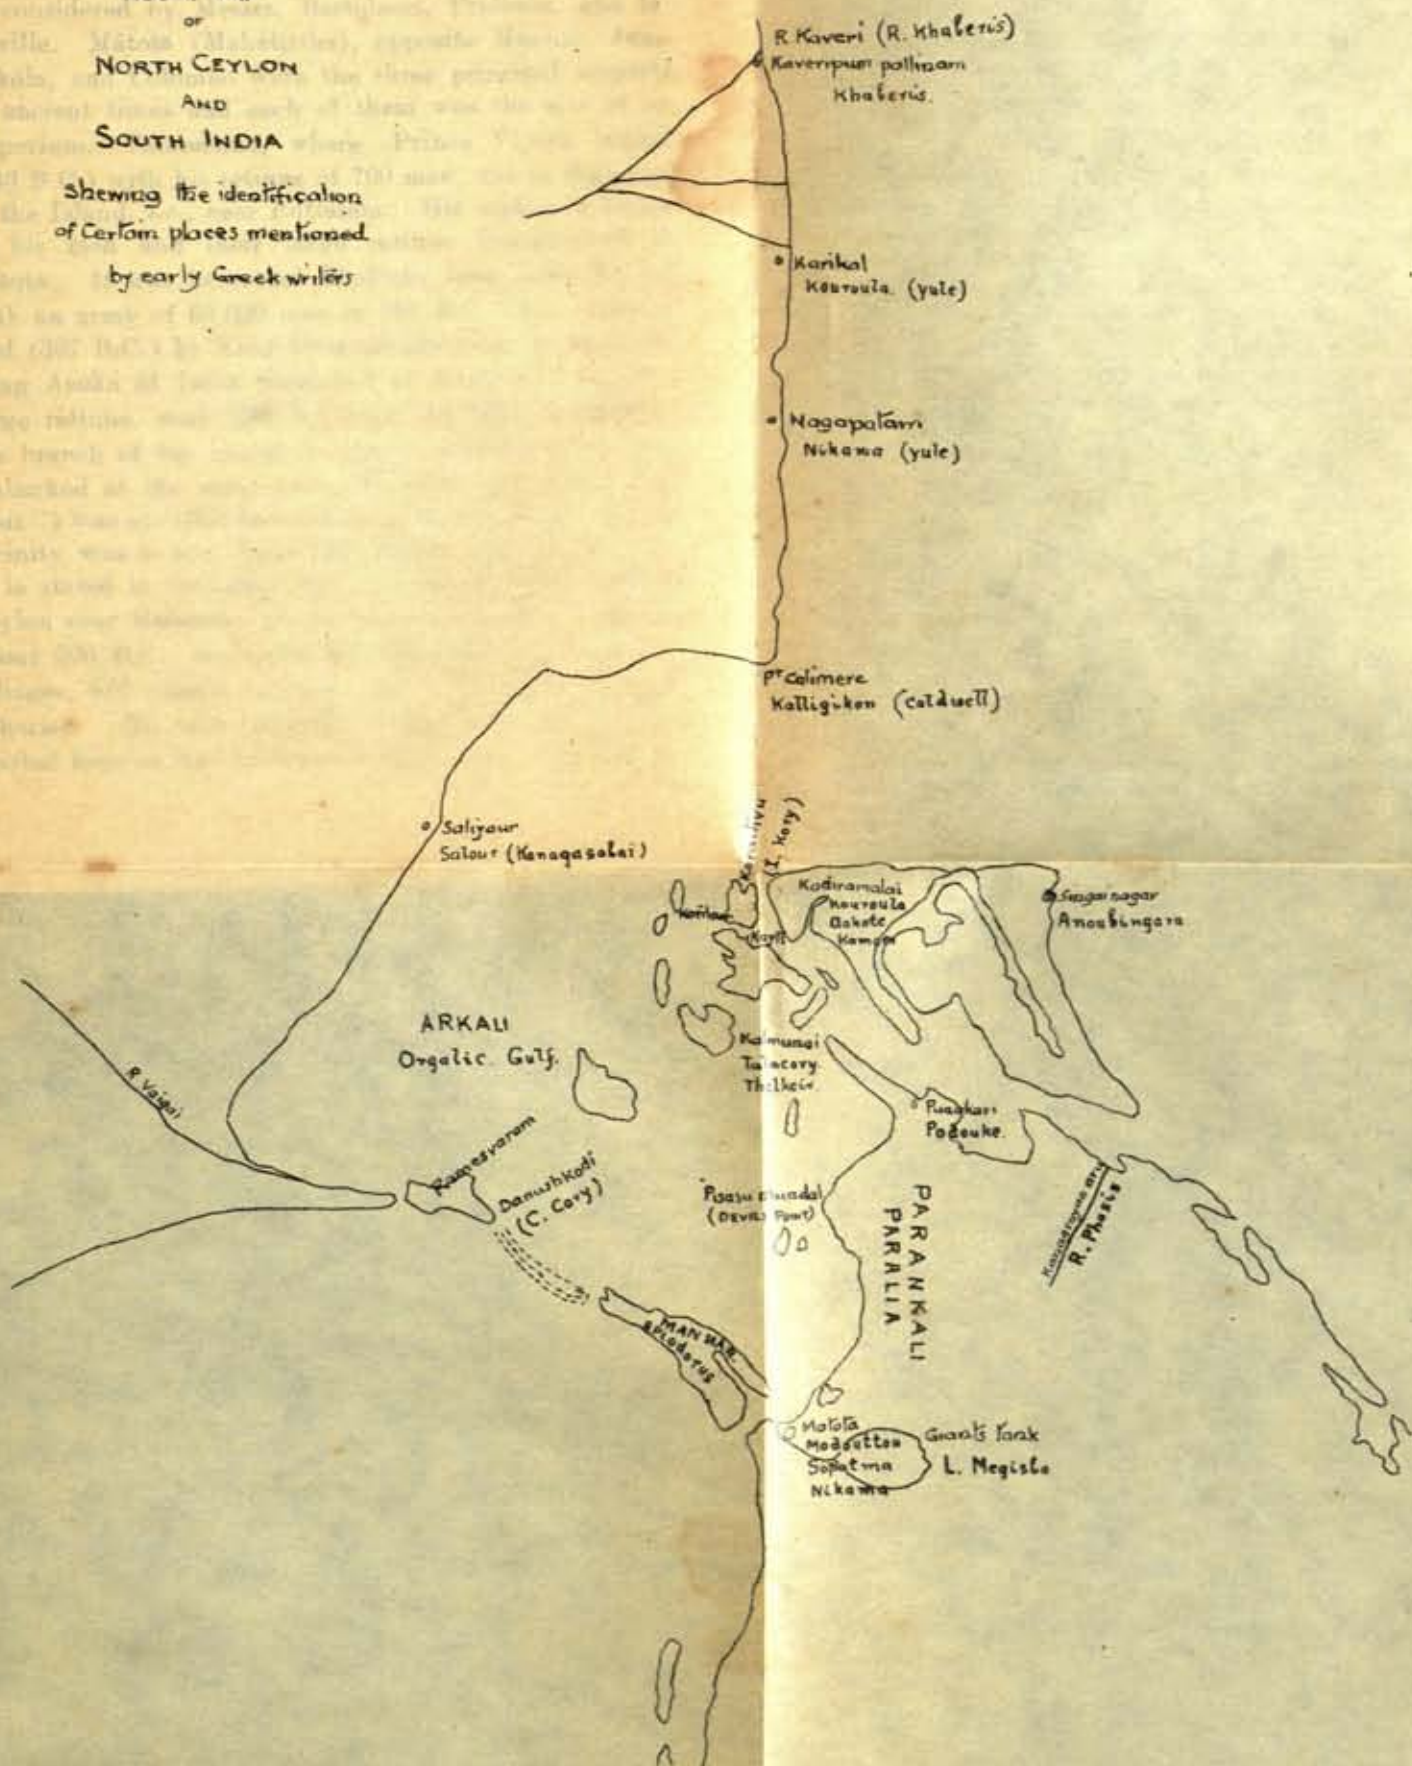 OF
NORTH CEYLON
AND
SOUTH INDIA
Shewing the identification
of Certain places mentioned
by early Greek writers
R. Kaveri (R. Khaberis)
Kaveripum pattinam
Khaberis.
Karikal
Kouroula (yule)
Nagapatam
Nikama (yule)
Pt Calimere
Kalligikon (Caldwell)
Saliyour
Salour (Kanagasabai)
(I. Kory)
Kadiramalai
Kouroula
Dakote
Singai nagar
Anoubingara
ARKALI
Orgalic Gulf.
Kalmunai
Talacory
R Vaigai
Ramesvaram
Danushkodi
(C. Cory)
Punkari
Podouke.
(DEVILS Point)
PARANKALI
PARALIA
R. Phasis
MANNAR
EPIODORUS
Matota
Modoutton
Sopatma
Nikama
Giants Tank
L. Megisba